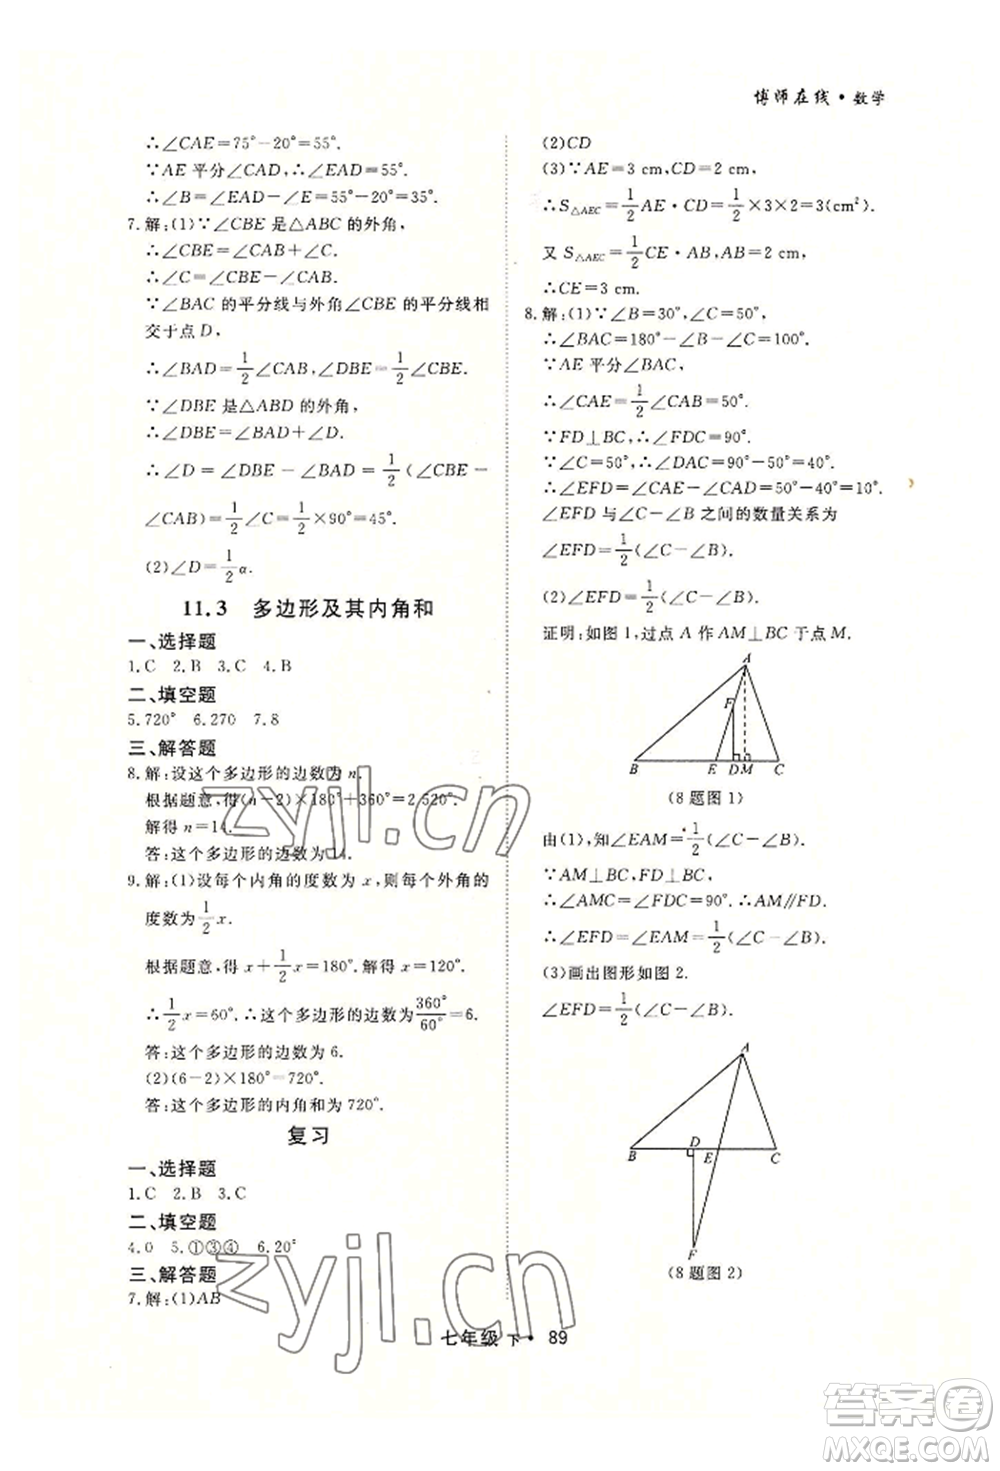 博师在线·数学
∴∠CAE=75°-20°=55°.
∵AE 平分∠CAD,∴∠EAD=55°.
∴∠B=∠EAD-∠E=55°-20°=35°.
7.解:(1)∵∠CBE 是△ABC 的外角,
∴∠CBE=∠CAB+∠C.
∴∠C=∠CBE-∠CAB.
∵∠BAC 的平分线与外角∠CBE 的平分线相
交于点 D,
∴∠BAD=1/2∠CAB,∠DBE=1/2∠CBE.
∵∠DBE 是△ABD 的外角,
∴∠DBE=∠BAD+∠D.
∴∠D=∠DBE-∠BAD=1/2(∠CBE-
∠CAB)=1/2∠C=1/2×90°=45°.
(2)∠D=1/2α.
11.3 多边形及其内角和
一、选择题
1.C 2.B 3.C 4.B
二、填空题
5.720° 6.270 7.8
三、解答题
8.解:设这个多边形的边数为 n.
根据题意,得(n-2)×180°+360°=2 520°.
解得 n=14.
答:这个多边形的边数为 14.
9.解:(1)设每个内角的度数为 x,则每个外角的
度数为1/2x.
根据题意,得 x+1/2x=180°.解得 x=120°.
∴1/2x=60°.∴这个多边形的边数为360°/60°=6.
答:这个多边形的边数为 6.
(2)(6-2)×180°=720°.
答:这个多边形的内角和为 720°.
复习
一、选择题
1.C 2.B 3.C
二、填空题
4.0 5.①③④ 6.20°
三、解答题
7.解:(1)AB
(2)CD
(3)∵AE=3 cm,CD=2 cm,
∴S△AEC=1/2AE·CD=1/2×3×2=3(cm²).
又 S△AEC=1/2CE·AB,AB=2 cm,
∴CE=3 cm.
8.解:(1)∵∠B=30°,∠C=50°,
∴∠BAC=180°-∠B-∠C=100°.
∵AE 平分∠BAC,
∴∠CAE=1/2∠CAB=50°.
∵FD⊥BC,∴∠FDC=90°.
∵∠C=50°,∴∠DAC=90°-50°=40°.
∴∠EFD=∠CAE-∠CAD=50°-40°=10°.
∠EFD 与∠C-∠B 之间的数量关系为
∠EFD=1/2(∠C-∠B).
(2)∠EFD=1/2(∠C-∠B).
证明:如图 1,过点 A 作 AM⊥BC 于点 M.
A
F
B E D M C
(8题图1)
由(1),知∠EAM=1/2(∠C-∠B).
∵AM⊥BC,FD⊥BC,
∴∠AMC=∠FDC=90°.∴AM∥FD.
∴∠EFD=∠EAM=1/2(∠C-∠B).
(3)画出图形如图 2.
∠EFD=1/2(∠C-∠B).
A
B D E C
F
(8题图2)
七年级 下·89
zyjl.cn
zyjl.cn
答案圈
MXQE.COM